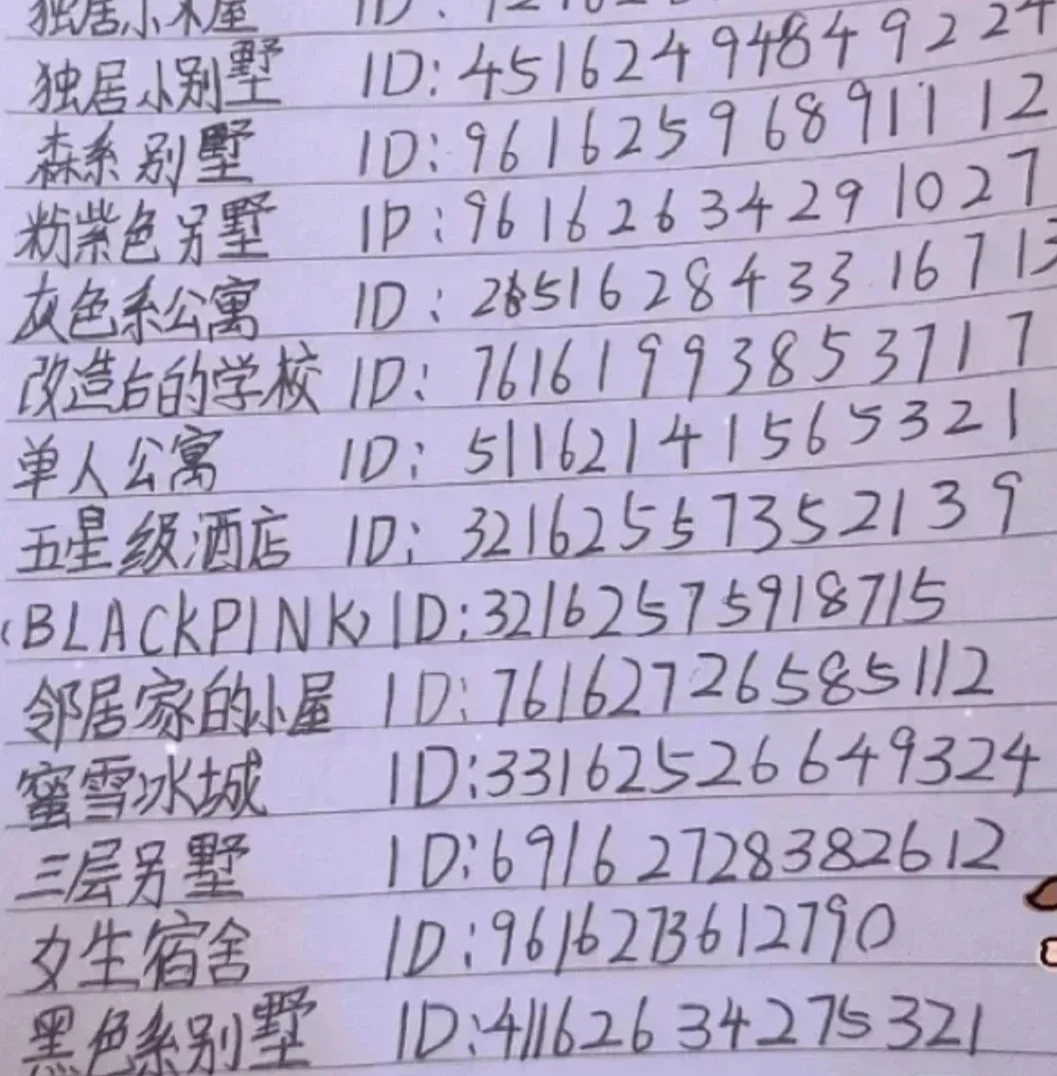 独居小木屋 ID:
独居小别墅 ID:451624948849224
森系别墅 ID:961625968911112
粉紫色别墅 ID:96162634291027
灰色系公寓 ID:
改造后的学校 ID:761619938853717
单人公寓 ID:511621415653 21
五星级酒店 ID:32162557352139
(BLACKPINK) ID:32162575918715
邻居家的小屋 ID:76162726585112
蜜雪冰城 ID:331625266649324
三层别墅 ID:691627283826 12
女生宿舍 ID:9616273612790
黑色系别墅 ID:411626342 75321